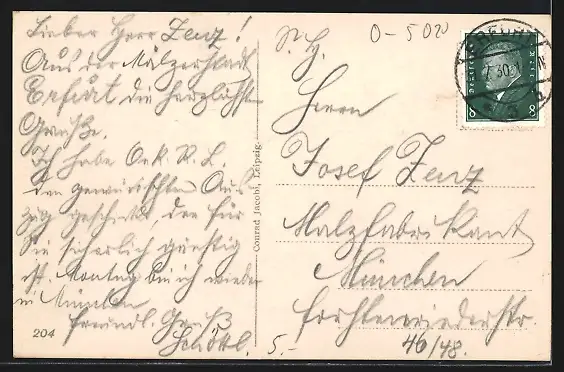 Lieber Herr Zenz!
Aus der Mälzerstadt
Erfurt die herzlichsten
Grüße.
Ich habe O.K.R.L.
den gewünschten Aus-
zug geschickt, der für
Sie sicherlich günstig
ist. Montag bin ich wieder
in München
freundl. Gruß
204
Conrad Jacobi, Leipzig.
S. H.
O-5020
Herrn
Josef Zenz
Malzfabrikant
München
Forstenriederstr.
46/48.
5.-
ERFURT
7.30
8 8